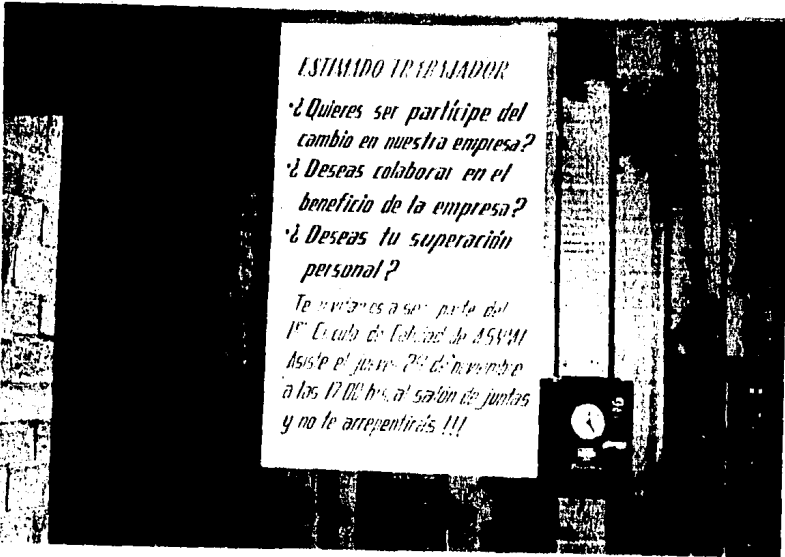 ESTIMADO TRABAJADOR
·¿ Quieres ser partícipe del
cambio en nuestra empresa?
·¿ Deseas colaborar en el
beneficio de la empresa?
·¿ Deseas tu superación
personal?
Te invitamos a ser parte del
1er Círculo de Calidad de
Asiste el jueves de noviembre
a las 17.00 hrs. al salón de juntas
y no te arrepentirás !!!